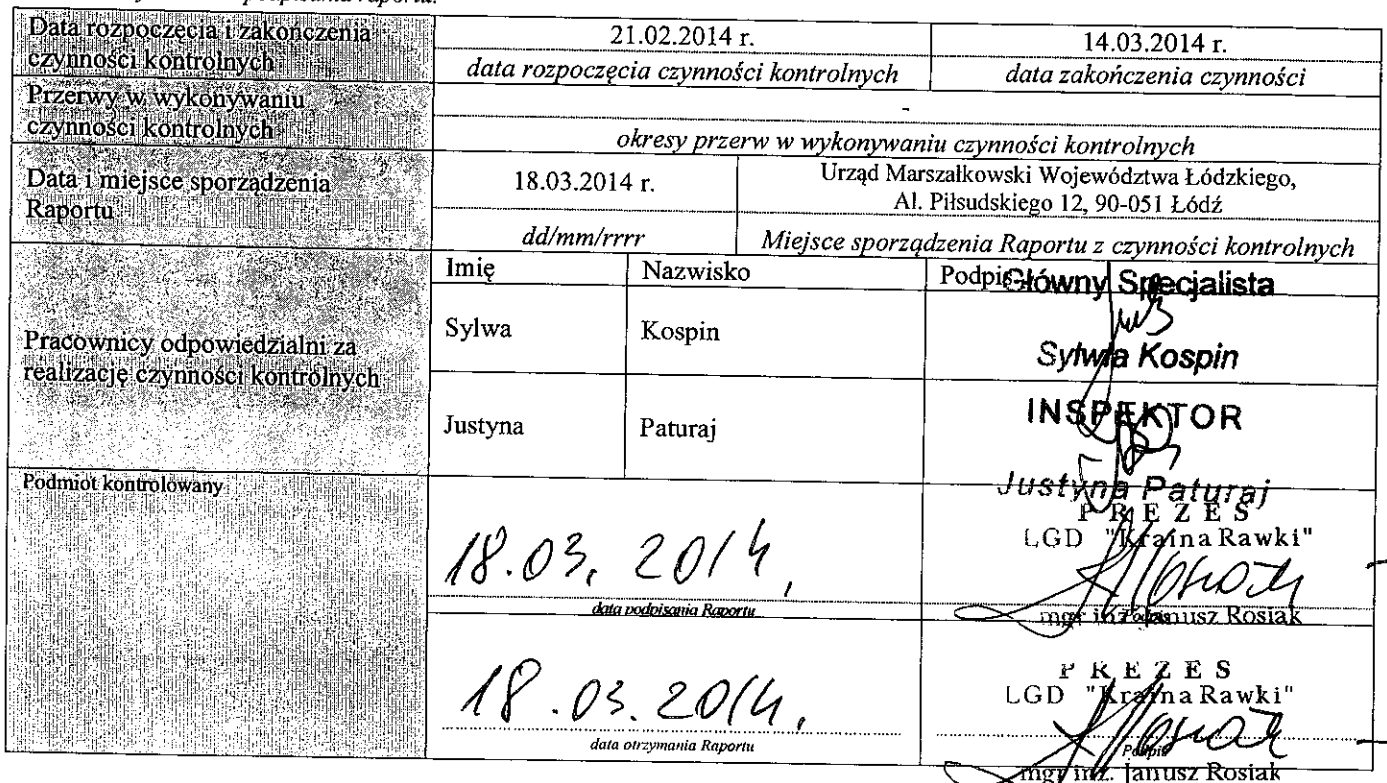 podpisania raportu.
Data rozpoczęcia i zakończenia
czynności kontrolnych
21.02.2014 r.
14.03.2014 r.
data rozpoczęcia czynności kontrolnych
data zakończenia czynności
Przerwy w wykonywaniu
czynności kontrolnych
-
okresy przerw w wykonywaniu czynności kontrolnych
Data i miejsce sporządzenia
Raportu
18.03.2014 r.
Urząd Marszałkowski Województwa Łódzkiego,
Al. Piłsudskiego 12, 90-051 Łódź
dd/mm/rrrr
Miejsce sporządzenia Raportu z czynności kontrolnych
Pracownicy odpowiedzialni za
realizację czynności kontrolnych
Imię
Nazwisko
Podpis
Główny Specjalista
Sylwa
Kospin
Sylwia Kospin
Justyna
Paturaj
INSPEKTOR
Justyna Paturaj
Podmiot kontrolowany
18.03.2014,
data podpisania Raportu
PREZES
LGD "Kraina Rawki"
mgr inż. Janusz Rosiak
18.03.2014,
data otrzymania Raportu
PREZES
LGD "Kraina Rawki"
Podpis
mgr inż. Janusz Rosiak